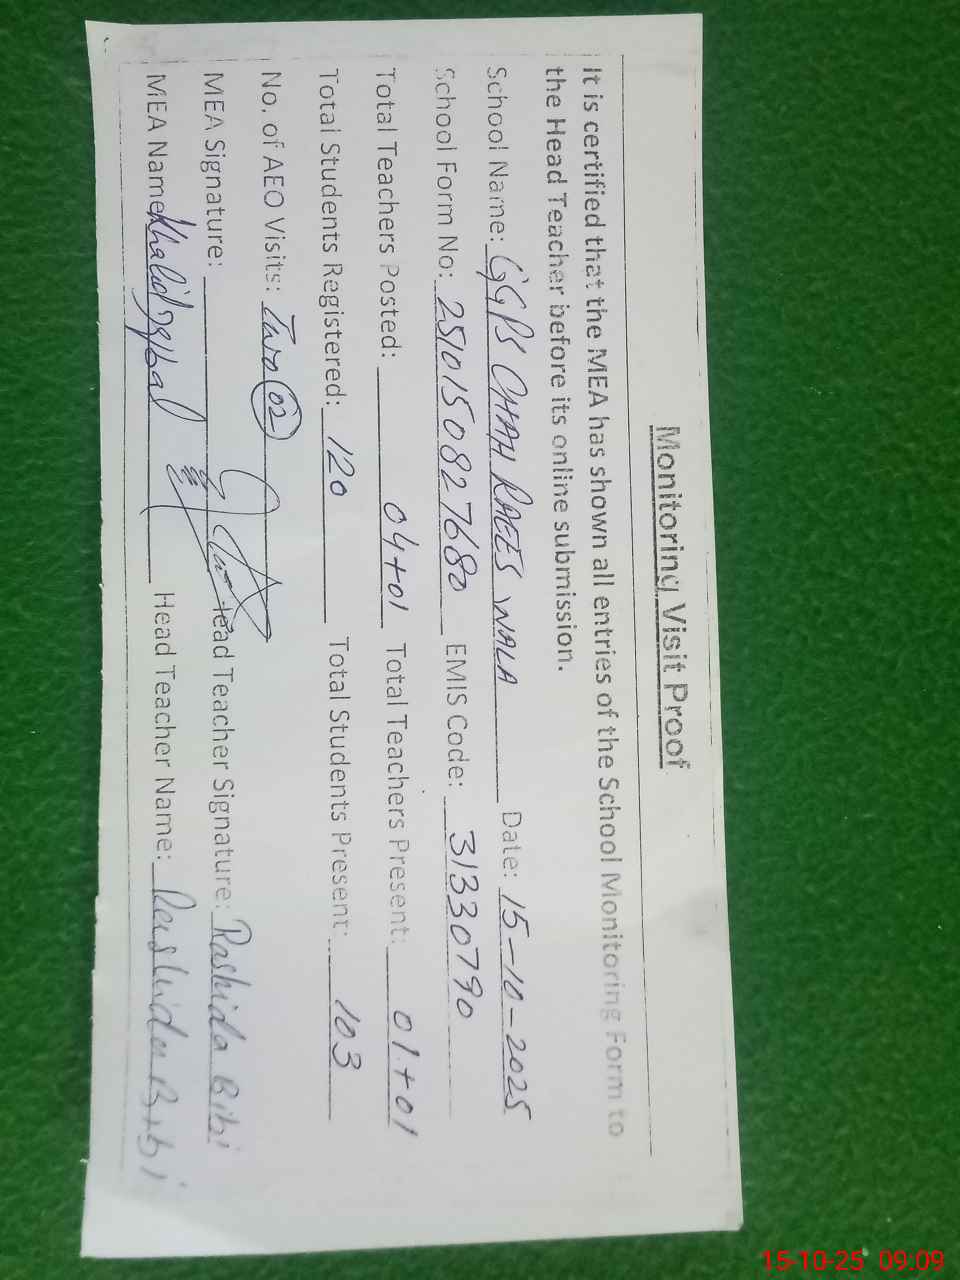 Monitoring Visit Proof
It is certified that the MEA has shown all entries of the School Monitoring Form to
the Head Teacher before its online submission.
School Name: GGPS CHAH RAEES WALA Date: 15-10-2025
School Form No: 2510150827680 EMIS Code: 31330790
Total Teachers Posted: 04+01 Total Teachers Present: 01+01
Total Students Registered: 120 Total Students Present: 103
No. of AEO Visits: Two (02)
MEA Signature: Head Teacher Signature: Rashida Bibi
MEA Name: Khalid Iqbal Head Teacher Name: Rashida Bibi
15-10-25 09:09